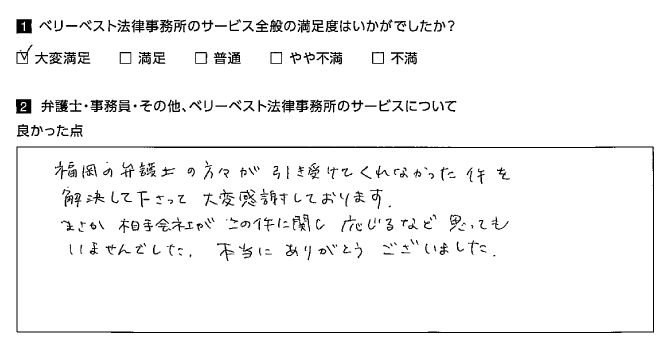 1 ベリーベスト法律事務所のサービス全般の満足度はいかがでしたか？
☑ 大変満足 □ 満足 □ 普通 □ やや不満 □ 不満
2 弁護士・事務員・その他、ベリーベスト法律事務所のサービスについて
良かった点
福岡の弁護士の方々が引き受けてくれなかった件を
解決して下さって大変感謝しております。
まさか相手会社がこの件に関し応じるなど思っても
いませんでした。本当にありがとうございました。